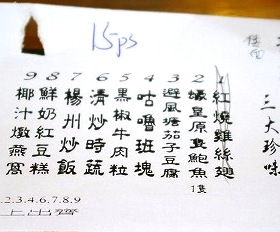 15ps
三大珍味
1 紅燒雞絲翅
2 蠔皇原隻鮑魚 1隻
3 避風塘茄子豆腐
4 咕嚕班塊
5 黑椒牛肉粒
6 清炒時蔬
7 楊州炒飯
8 鮮奶紅豆糕
9 椰汁燉燕窩
.2.3.4.5.6.7.8.9